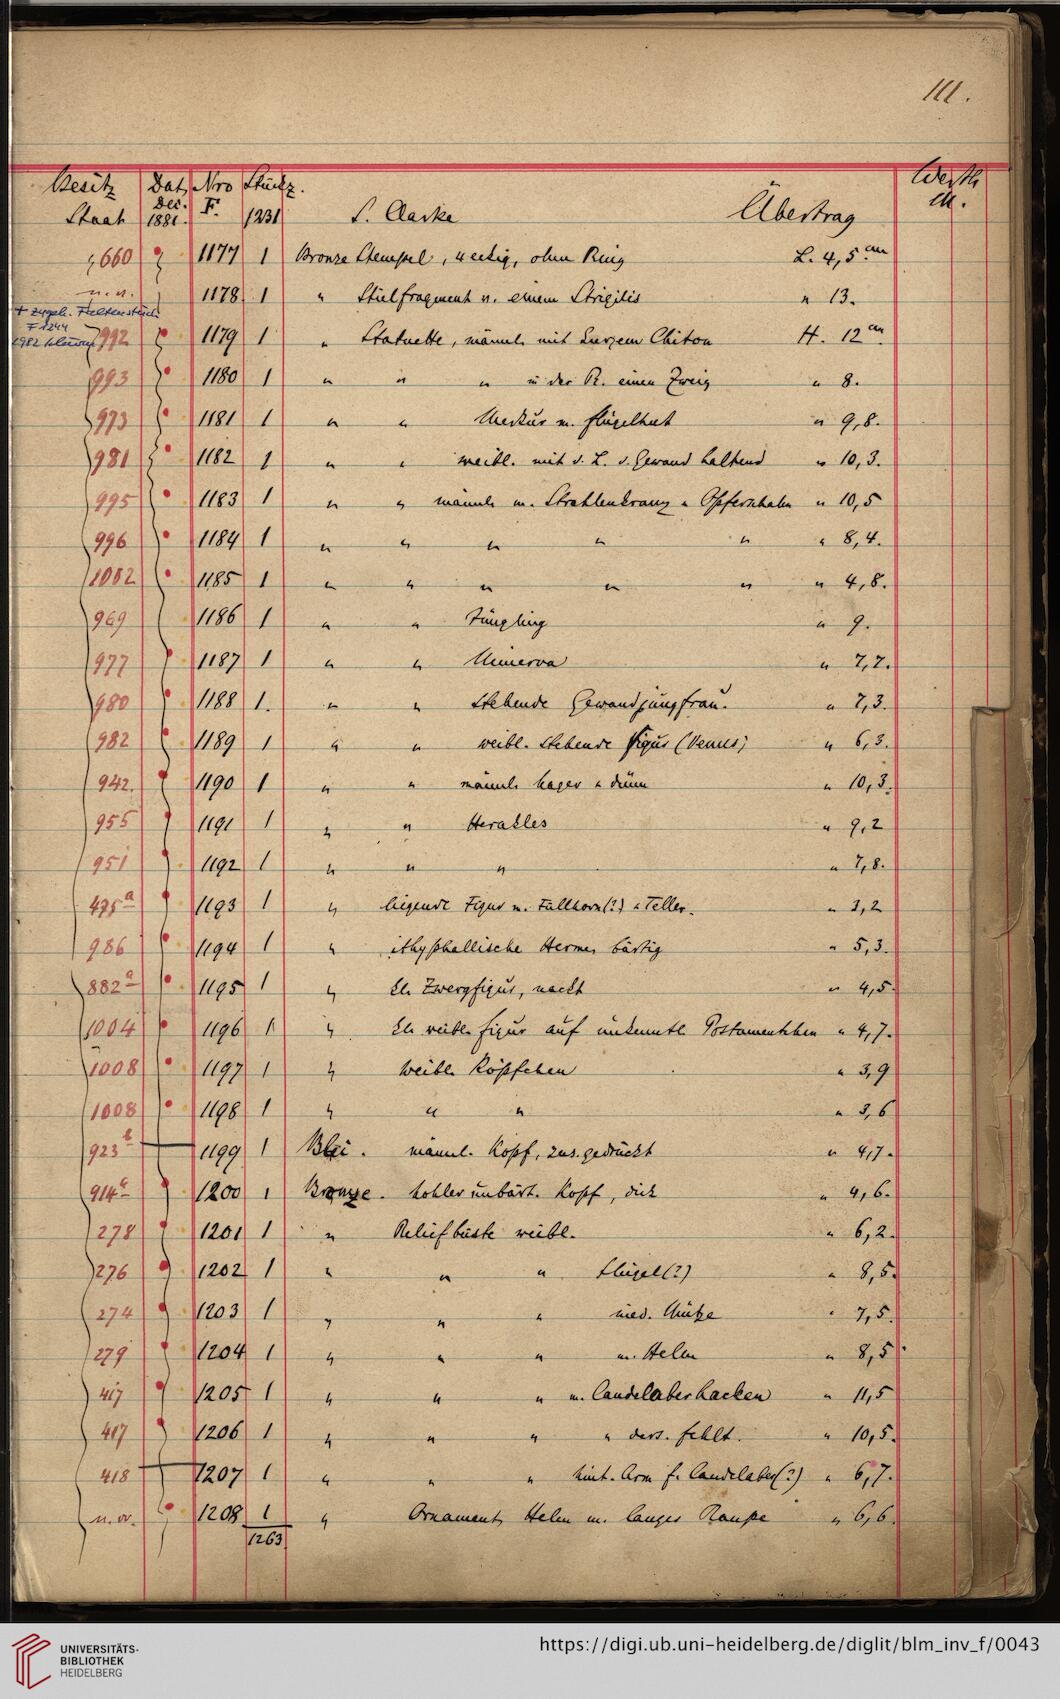 111.
Besitz Dat. Nro Stückz. Werth
Staat Dec. 1881. F. 1231 S. Clarke Übertrag M.
660 1177 1 Bronze Stempel, 4 eckig, ohne Ring L. 4,5 cm
n.n. 1178 1 " Stielfragment v. einem Strigilis " 13.
+ zugeh. Faltenstück
F 1244
1982
992 1179 1 " Statuette, männl. mit kurzem Chiton H. 12 cm.
993 1180 1 " " " in der R. einen Zweig " 8.
973 1181 1 " " Merkur m. Flügelhut " 9,8.
981 1182 1 " " weibl. mit d. L. d. Gewand haltend " 10,3.
995 1183 1 " " männl. m. Strahlenkranz u Opferschale " 10,5
996 1184 1 " " " " " " 8,4.
1002 1185 1 " " " " " " 4,8.
969 1186 1 " " Jüngling " 9.
977 1187 1 " " Minerva " 7,7.
980 1188 1. " " stehende Gewandjungfrau. " 7,3.
982 1189 1 " " weibl. stehende Figur (Venus) " 6,3.
942. 1190 1 " " männl. hager u dünn " 10,3.
955 1191 1 " " Herakles " 9,2
951 1192 1 " " " " 7,8.
475a 1193 1 " liegende Figur m. Füllhorn(?) u Teller. " 3,2
986 1194 1 " ithyphallische Herme, bärtig " 5,3.
882a 1195 1 " kl. Zwergfigur, nackt " 4,5.
1004 1196 1 " kl. weibl. Figur auf unkenntl. Postamentchen " 4,7.
1008 1197 1 " weibl. Köpfchen " 3,9
1008 1198 1 " " " " 3,6
923b 1199 1 Blei. männl. Kopf, zus. gedrückt " 4,7.
914 1200 1 Bronze. hohler unbärt. Kopf, dick " 4,6.
278 1201 1 " Reliefbüste weibl. " 6,2.
276 1202 1 " " " Flügel(?) " 8,5.
274 1203 1 " " " Mütze " 7,5.
279 1204 1 " " " m. Helm " 8,5.
417 1205 1 " " " m. Candelaberhacken " 11,5
417 1206 1 " " " " ders. fehlt. " 10,5.
418 1207 1 " " " hint. Arm f. Candelaber(?) " 6,7.
n.v. 1208 1 " Ornament, Helm m. langer Raupe " 6,6.
1263
UNIVERSITÄTS-
BIBLIOTHEK
HEIDELBERG
https://digi.ub.uni-heidelberg.de/diglit/blm_inv_f/0043